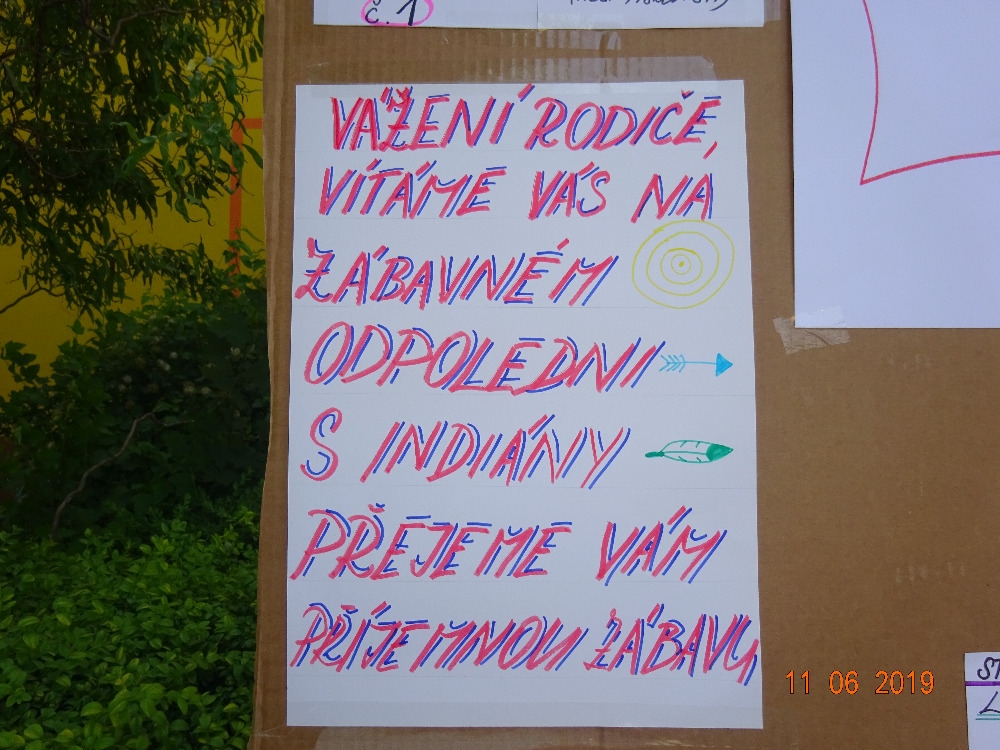 č. 1
VÁŽENÍ RODIČE,
VÍTÁME VÁS NA
ZÁBAVNÉM
ODPOLEDNI
S INDIÁNY
PŘEJEME VÁM
PŘÍJEMNOU ZÁBAVU
11 06 2019